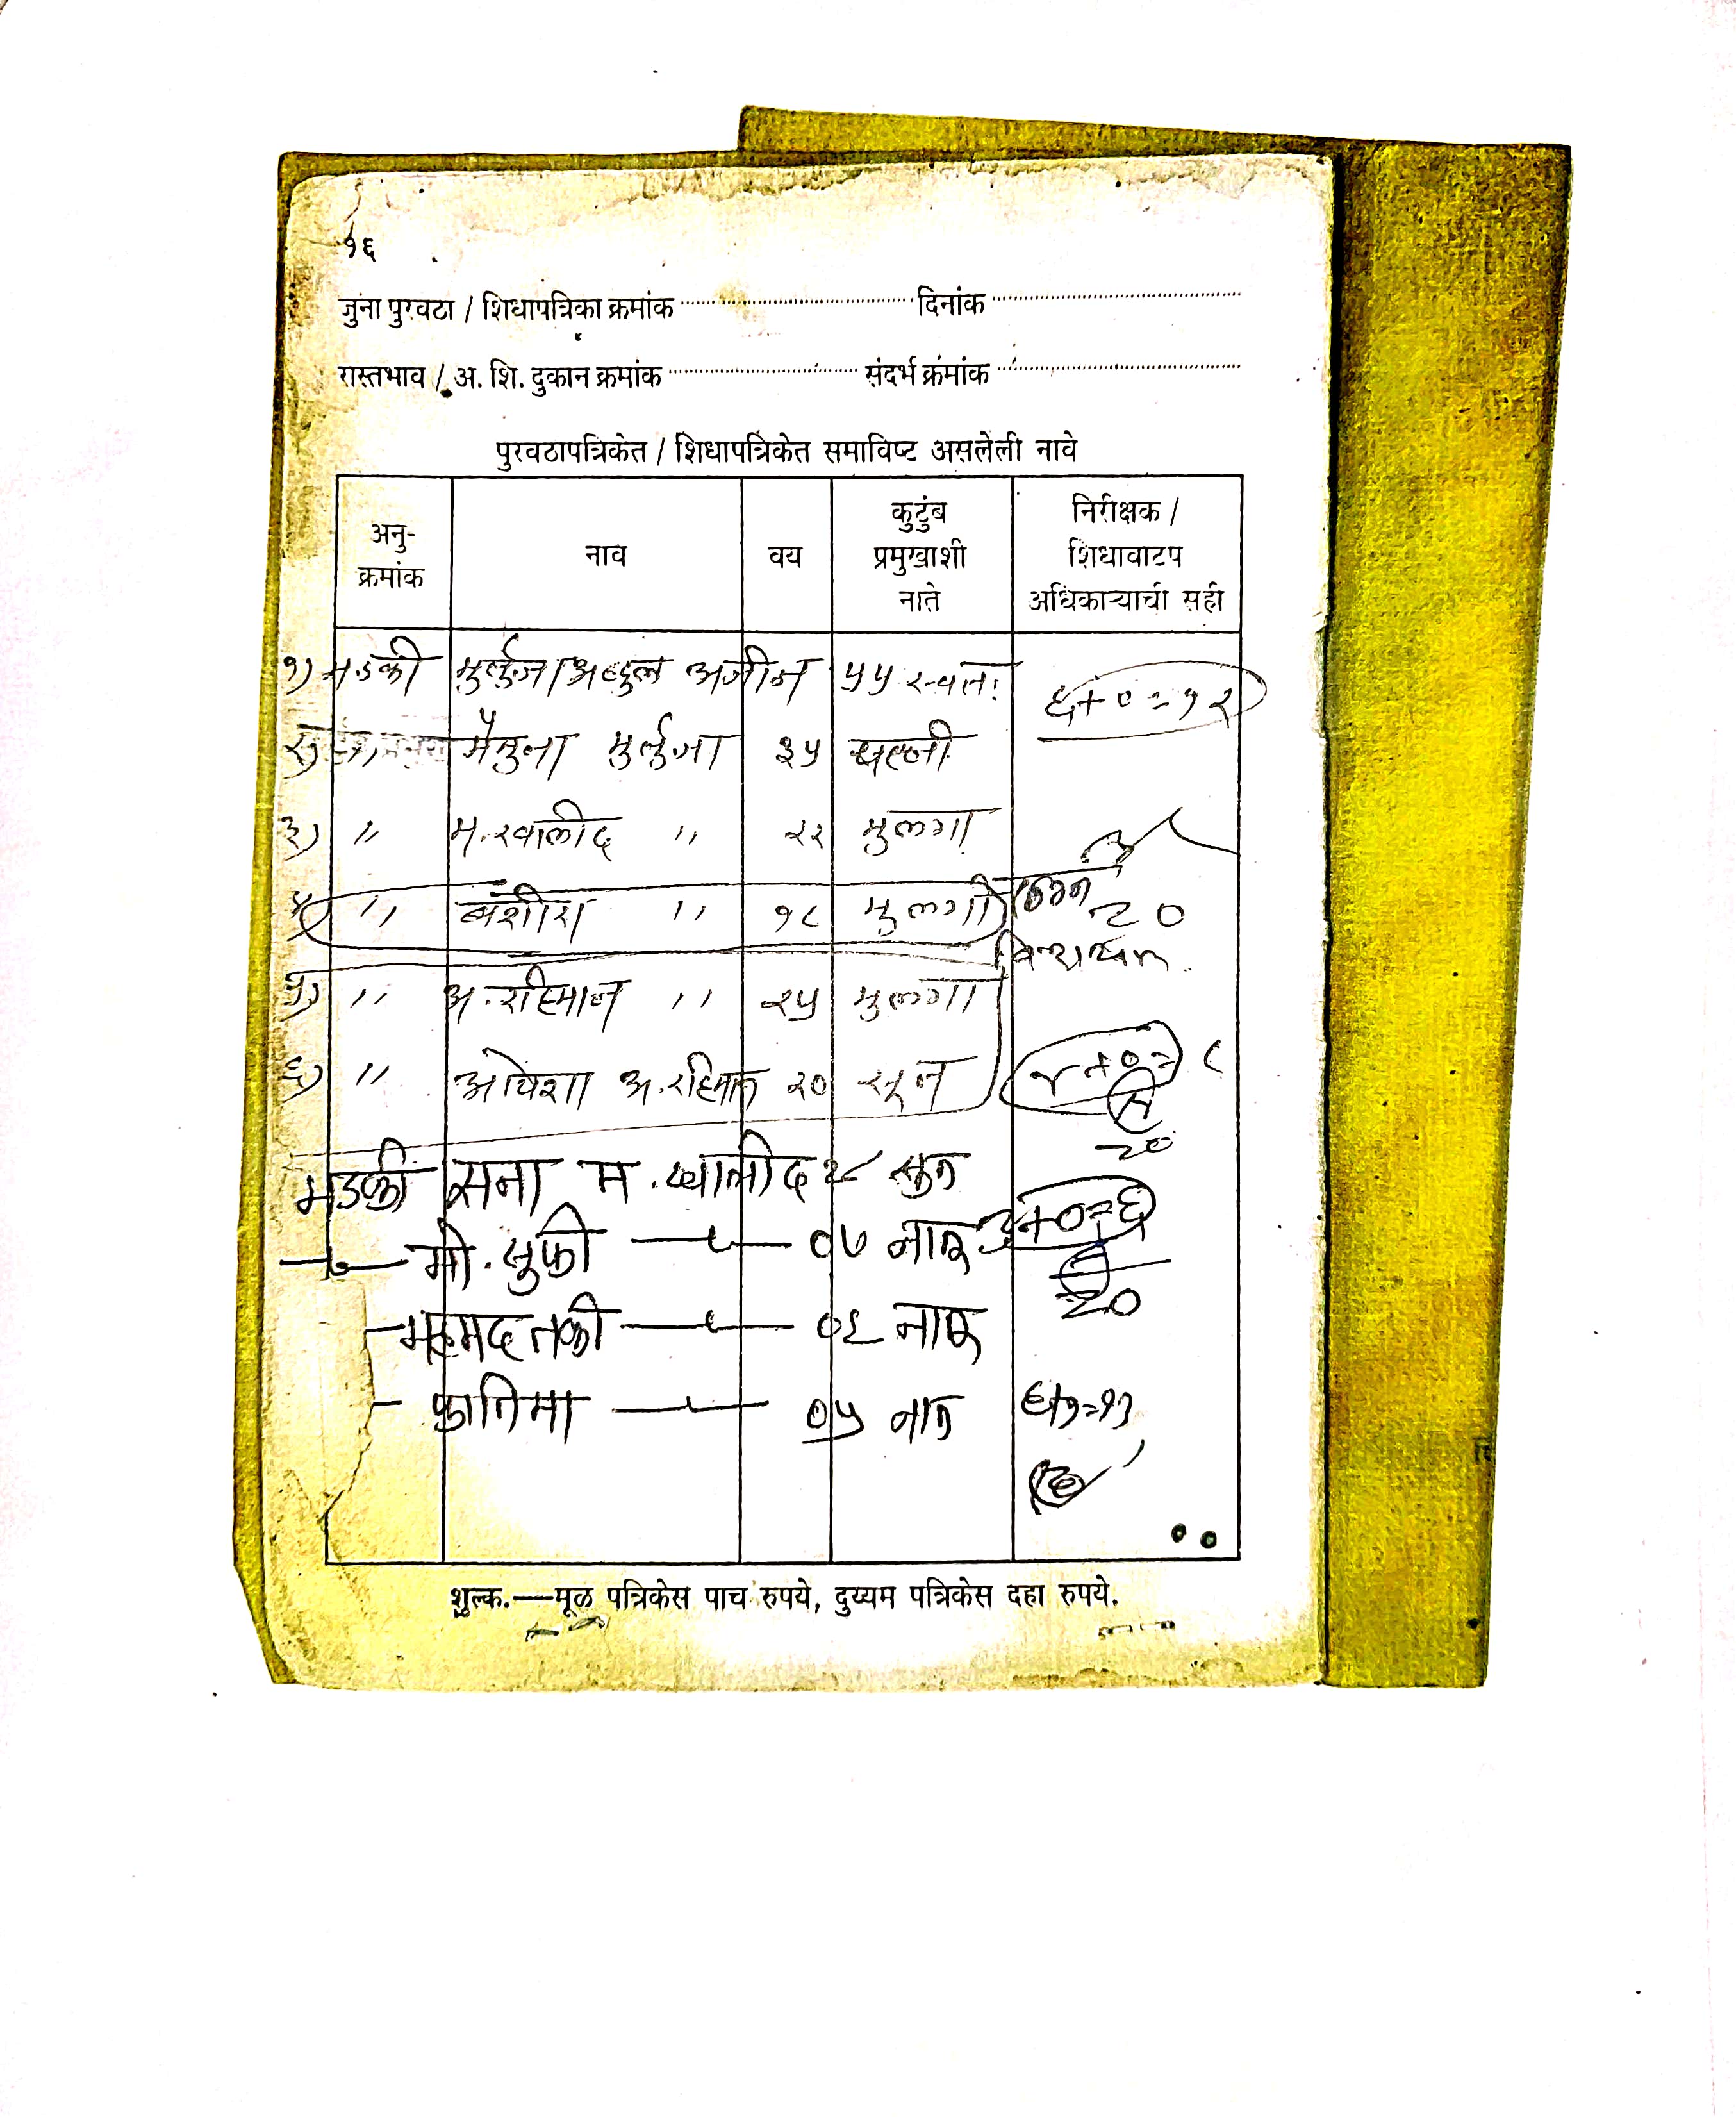 १६
जुना पुरवठा / शिधापत्रिका क्रमांक .................... दिनांक ....................
रास्तभाव / अ. शि. दुकान क्रमांक .................... संदर्भ क्रमांक ....................
पुरवठापत्रिकेत / शिधापत्रिकेत समाविष्ट असलेली नावे
अनु-क्रमांक नाव वय कुटुंब प्रमुखाशी नाते निरीक्षक / शिधावाटप अधिकाऱ्याची सही
१) मडकी मुर्तुजा अब्दुल अजीज ५५ स्वतः
६+०=१२
मैमुना मुर्तुजा ३५ पत्नी
३) " म.खालीद " २२ मुलगा
" बशीरा " १८ मुलगी लग्न
20
५) " अ.रहिमान " २५ मुलगा
६) " आयेशा अ.रहिमान २० सून
४+०=८
20
मडकी सना म.खालीद २८ सुन
मो.सुफी —"— ०७ नातू ३+०=६
20
महमद तकी —"— ०६ नातू
फातिमा —"— ०५ नात
शुल्क.—मूळ पत्रिकेस पाच रुपये, दुय्यम पत्रिकेस दहा रुपये.